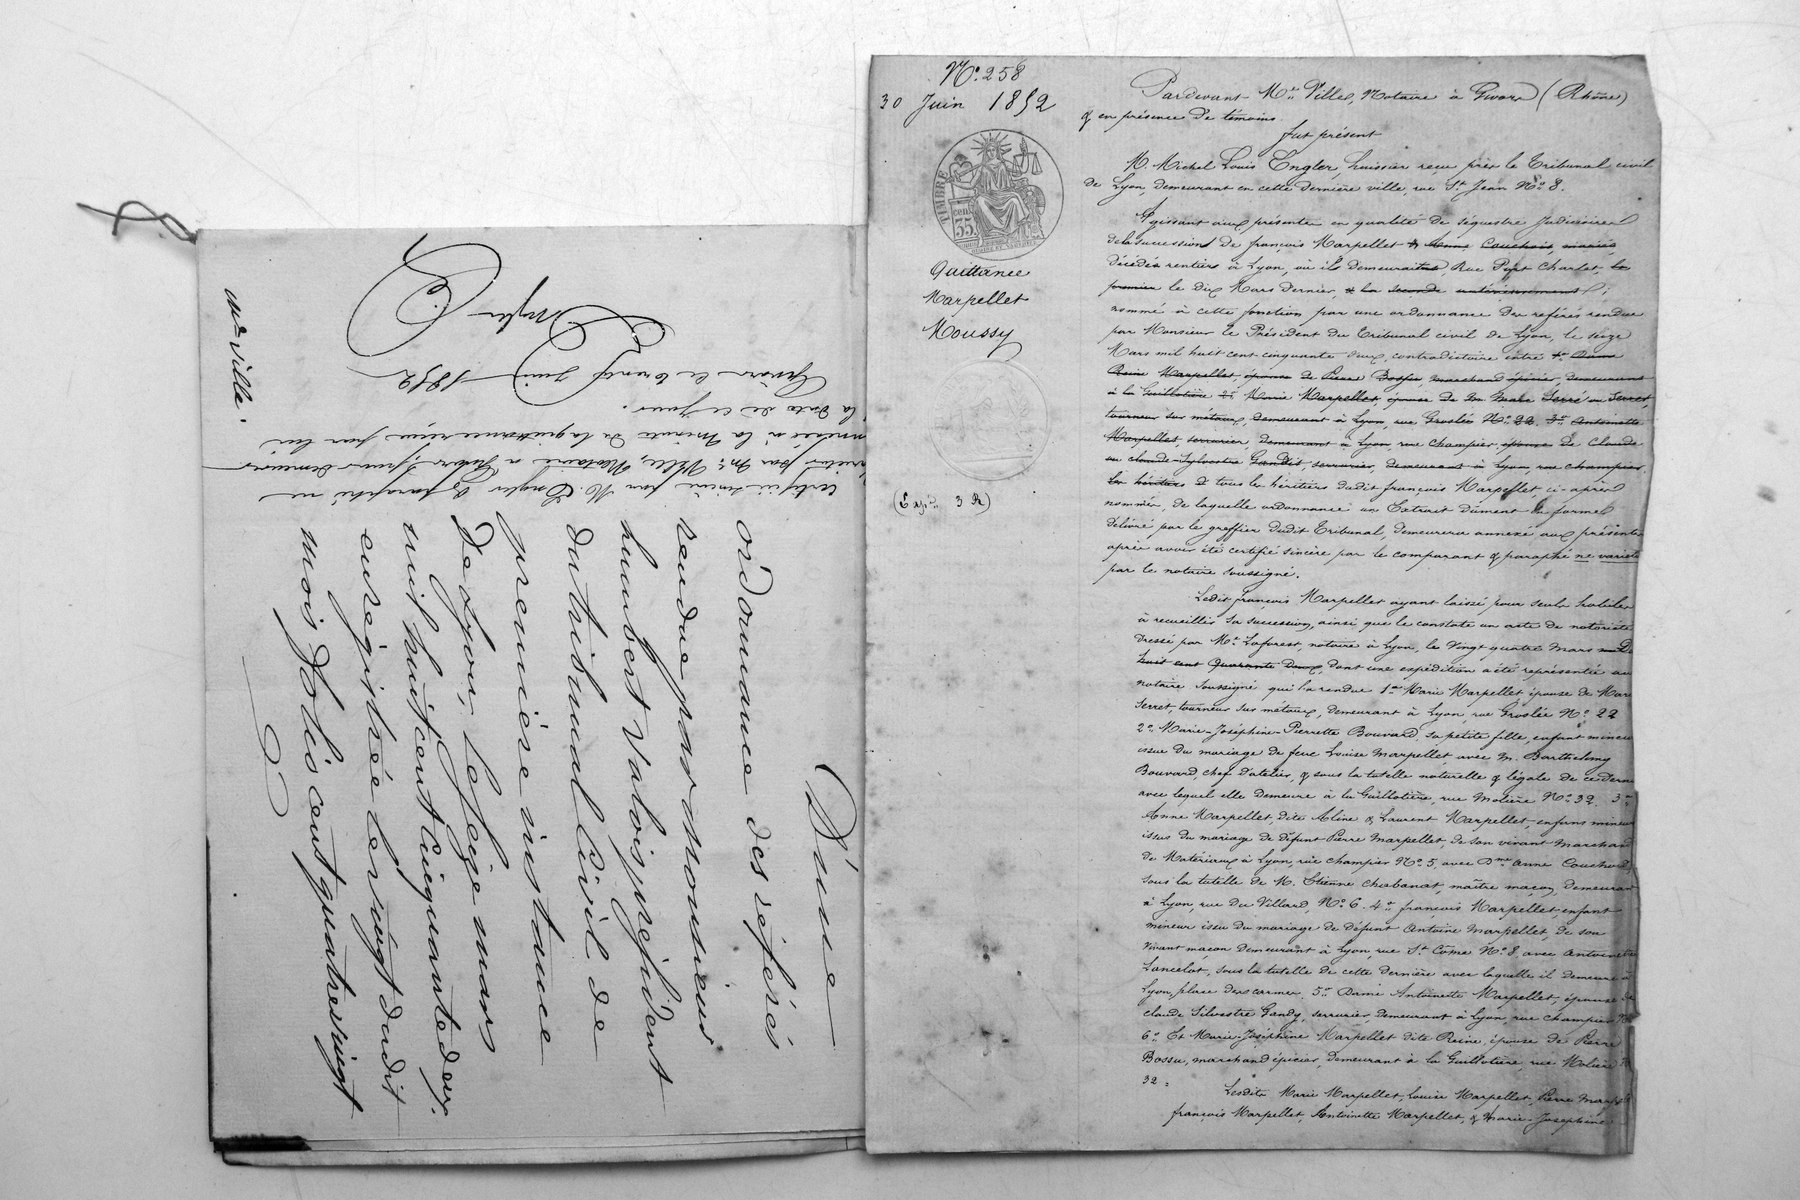 N.° 258
30 Juin 1852
TIMBRE
35
cent
Quittance
Marpellet
Moussy
(Exp.on 3 R)
Pardevant M.re Ville, Notaire à Givors (Rhône)
& en présence de témoins
fut présent
M. Michel Louis Engler, huissier reçu près le Tribunal civil
de Lyon, demeurant en cette dernière ville, rue S.t Jean N.o 8.
Agissant aux présentes en qualité de séquestre Judiciaire
de la succession de françois Marpellet & Anne Couchoix, mariés,
décédés rentiers à Lyon, où ils demeuraient Rue Port Charlet, le
premier le dix Mars dernier, & la seconde antérieurement;
nommé à cette fonction par une ordonnance de référés rendue
par Monsieur le Président du Tribunal civil de Lyon, le seize
Mars mil huit cent cinquante deux, contradictoire entre 1.o Dame
Reine Marpellet, épouse de Pierre Bossu, marchand épicier, demeurant
à la Guillotière 2.o Marie Marpellet, épouse de Marie Serré ou Serret,
tourneur sur métaux, demeurant à Lyon, rue Groslée N.o 22. 3.o Antoinette
Marpellet, serrurier, demeurant à Lyon, rue Champier, épouse de Claude
ou claude-Sylvestre Gandit, serrurier, demeurant à Lyon rue champier.
Les héritiers & tous les héritiers dudit françois Marpellet, ci-après
nommés, de laquelle ordonnance un Extrait dûment en forme
délivré par le greffier dudit Tribunal, demeurera annexé aux présentes
après avoir été certifié sincère par le comparant & paraphé ne varietur
par le notaire soussigné.
Ledit françois Marpellet ayant laissé pour seuls habiles
à recueillir sa succession, ainsi que le constate un acte de notoriété
dressé par M.e Laforest, notaire à Lyon, le Vingt quatre Mars mil
huit cent Quarante Deux, dont une expédition a été représentée au
notaire soussigné qui l'a rendue 1.ent Marie Marpellet épouse de Marc
Serret, tourneur sur métaux, demeurant à Lyon, rue Groslée N.o 22
2.o Marie-Joséphine-Pierrette Bouvard, sa petite fille, enfant mineur
issue du mariage de feue Louise Marpellet avec M. Barthelemy
Bouvard, chef d'atelier, & sous la tutelle naturelle & légale de ce dernier
avec lequel elle demeure à la Guillotière, rue Molière N.o 32. 3.o
Anne Marpellet, dite Aline & Laurent Marpellet, enfans mineurs
issus du mariage de défunt Pierre Marpellet de son vivant Marchand
de Matériaux à Lyon, rue champier N.o 5, avec D.me Anne Couchoud,
sous la tutelle de M. Etienne Chabanat, maître maçon, demeurant
à Lyon, rue Du Villard, N.o 6. 4.o françois Marpellet, enfant
mineur issu du mariage de défunt Antoine Marpellet, de son
vivant maçon demeurant à Lyon, rue S.t Côme N.o 8, avec Antoinette
Lancelot, sous la tutelle de cette dernière avec laquelle il demeure à
Lyon, place des carmes. 5.o Dame Antoinette Marpellet, épouse de
claude Silvestre Gandy, serrurier, demeurant à Lyon, rue champier N.o
6.o Et Marie-Joséphine Marpellet dite Reine, épouse de Pierre
Bossu, marchand épicier, demeurant à la Guillotière, rue Molière N.o
32.
Lesdits Marie Marpellet, Louise Marpellet, Pierre Marpellet
françois Marpellet, Antoinette Marpellet, & Marie-Joséphine
D'une
ordonnance des référés
rendue par Monsieur
humbert Valois président
du tribunal Civil de
première instance
De Lyon, Le seize mars
mil huit cent Cinquante deux.
enregistrée le vingt dudit
mois folio cent quatre vingt
certifié sincère par M. Engler & paraphé ne
varietur par M.e Ville, Notaire à Givors, pour demeurer
annexé à la Minute de la quittance reçue par lui
à la date de ce jour.
Givors le trente Juin 1852
Engler
M.re Ville